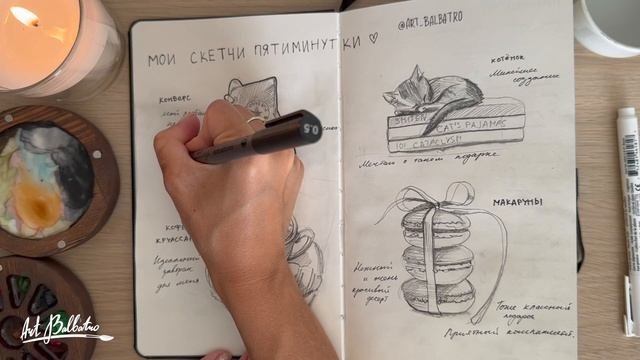 @ART_BALBATRO
МОИ СКЕТЧИ ПЯТИМИНУТКИ ♡
КОНВЕРС
0.5
КОФ
КРУАССА
Идеальный
завтрак
для меня
КОТЁНОК
Милейшее
создание
SMITTEN
CAT'S PAJAMAS
101 CATACLYSM
Мечтаю о таком подарке
МАКАРУНЫ
Нежный
и очень
красивый
десерт
Тоже классный
подарок
Приятный
Art Balbatro